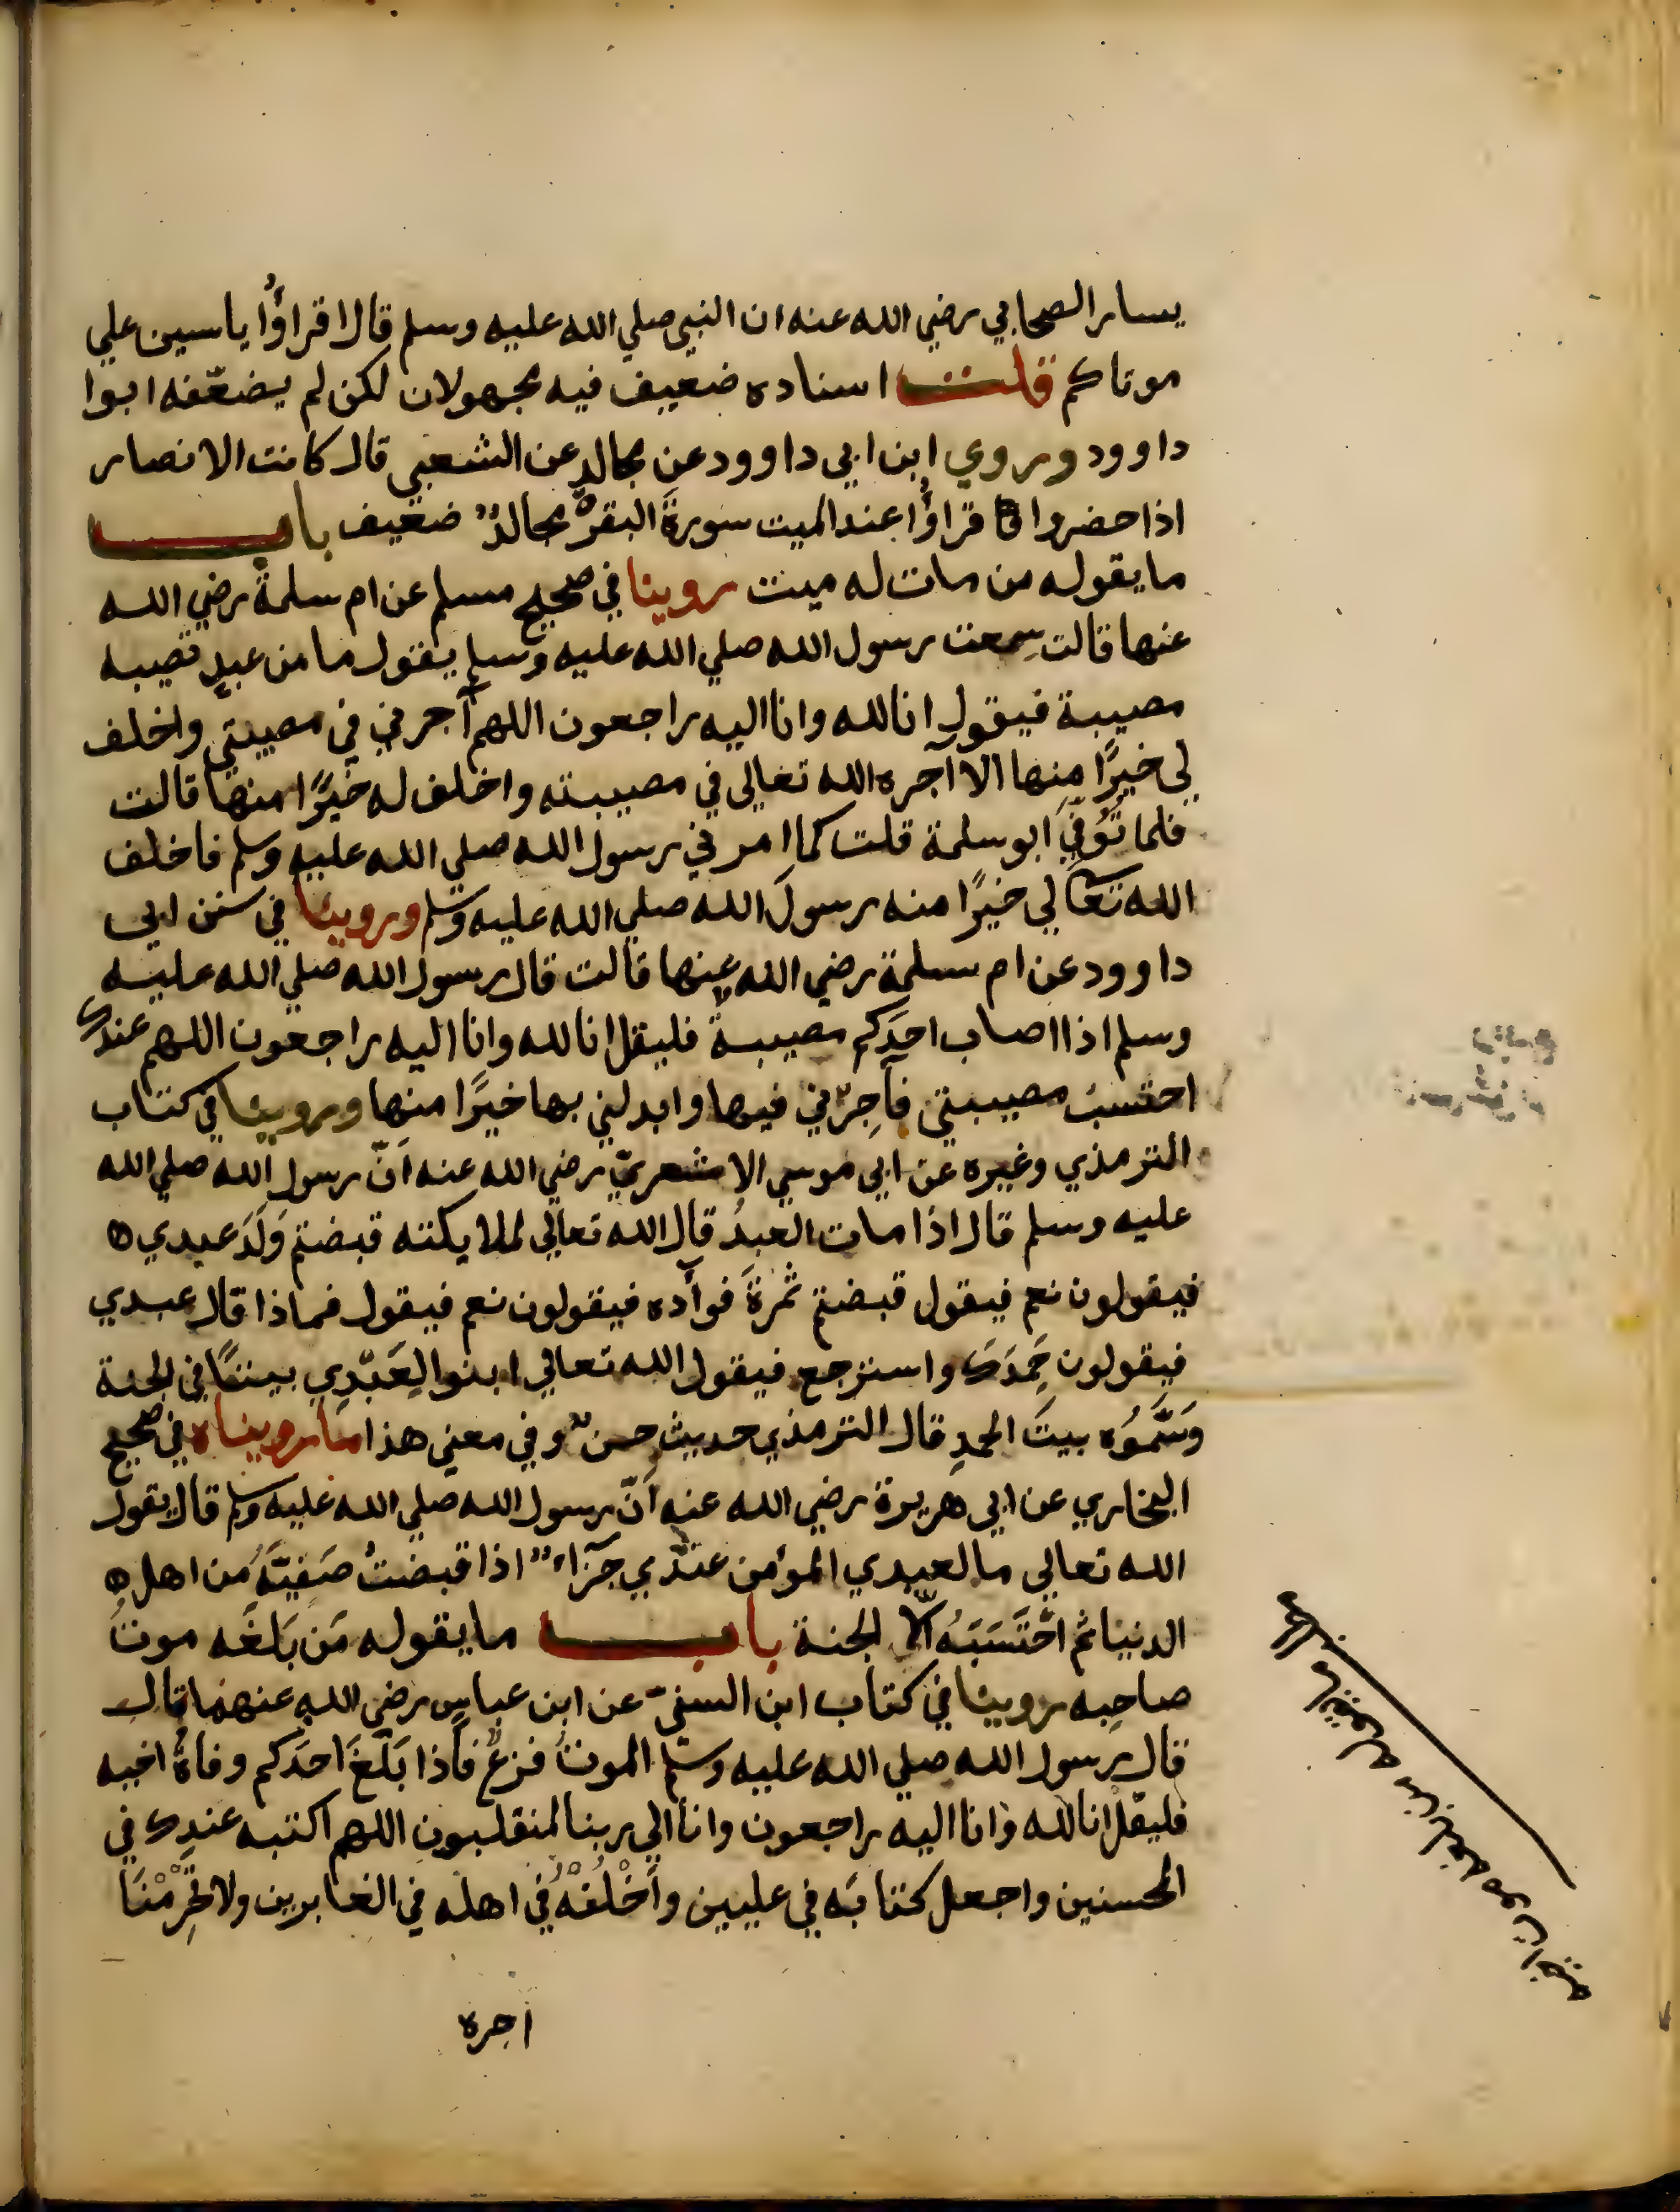 يسار الصحابي رضي الله عنه ان النبي صلي الله عليه وسلم قال اقراؤا ياسين علي
موتاكم قلت اسناده ضعيف فيه مجهولان لكن لم يضعّفه ابوا
داوود وروي ابن ابي داوود عن مجالدٍ عن الشعبي قال كانت الانصار
اذا حضروا قراؤا عند الميت سورةَ البقرة مجالدٌ ضعيف باب
ما يقوله من مات له ميت روينا في صحيح مسلم عن ام سلمة رضي الله
عنها قالت سمعت رسول الله صلي الله عليه وسلم يقول ما من عبدٍ تصيبه
مصيبة فيقول انا لله وانا اليه راجعون اللهم آجرني في مصيبتي واخلف
لي خيرًا منها الا آجره الله تعالي في مصيبته واخلف له خيرًا منها قالت
فلما تُوُفّيَ ابو سلمة قلت كما امرني رسول الله صلي الله عليه وسلم فاخلف
الله تعالي لي خيرًا منه رسولَ الله صلي الله عليه وسلم وروينا في سنن ابي
داوود عن ام سلمة رضي الله عنها قالت قال رسول الله صلي الله عليه
وسلم اذا اصاب احدَكم مصيبةٌ فليقل انا لله وانا اليه راجعون اللهم عندك
احتسبُ مصيبتي فآجِرْني فيها وابدلني بها خيرًا منها وروينا في كتاب
الترمذي وغيره عن ابي موسي الاشعريّ رضي الله عنه اَنّ رسول الله صلي الله
عليه وسلم قال اذا مات العبدُ قال الله تعالي لملايكته قبضتم وَلَدَ عبدي ه
فيقولون نعم فيقول قبضتم ثمرةَ فوأده فيقولون نعم فيقول فماذا قال عبدي
فيقولون حَمِدَكَ واسترجع فيقول الله تعالي ابنوا لِعَبْدِي بيتًا في الجنة
وَسَمُّوُه بيتَ الحمدِ قال الترمذي حديث حسنٌ وفي معني هذا ما رويناه في صحيح
البخاري عن ابي هريرة رضي الله عنه اَنّ رسول الله صلي الله عليه وسلم قال يقول
الله تعالي ما لعبدي المؤمن عندي جَزَاءٌ اذا قبضتُ صَفيَّهُ مِن اهل ه
الدنيا ثم احْتَسَبَهُ الّا الجنة باب ما يقوله مَن بَلَغَه موتُ
صاحِبه روينا في كتاب ابن السنيّ عن ابن عباسٍ رضي الله عنهما قال
قال رسول الله صلي الله عليه وسلّم الموتُ فزعٌ فاذا بَلَغَ احدَكم وفاةُ اخيه
فليقل انا لله وانا اليه راجعون وانا الي ربنا لمنقلبون اللهم اكتبه عندك في
المحسنين واجعل كتابَه في عليين واَخْلُفْهُ في اهله في الغابرين ولا تَحْرِمْنَا
اجره